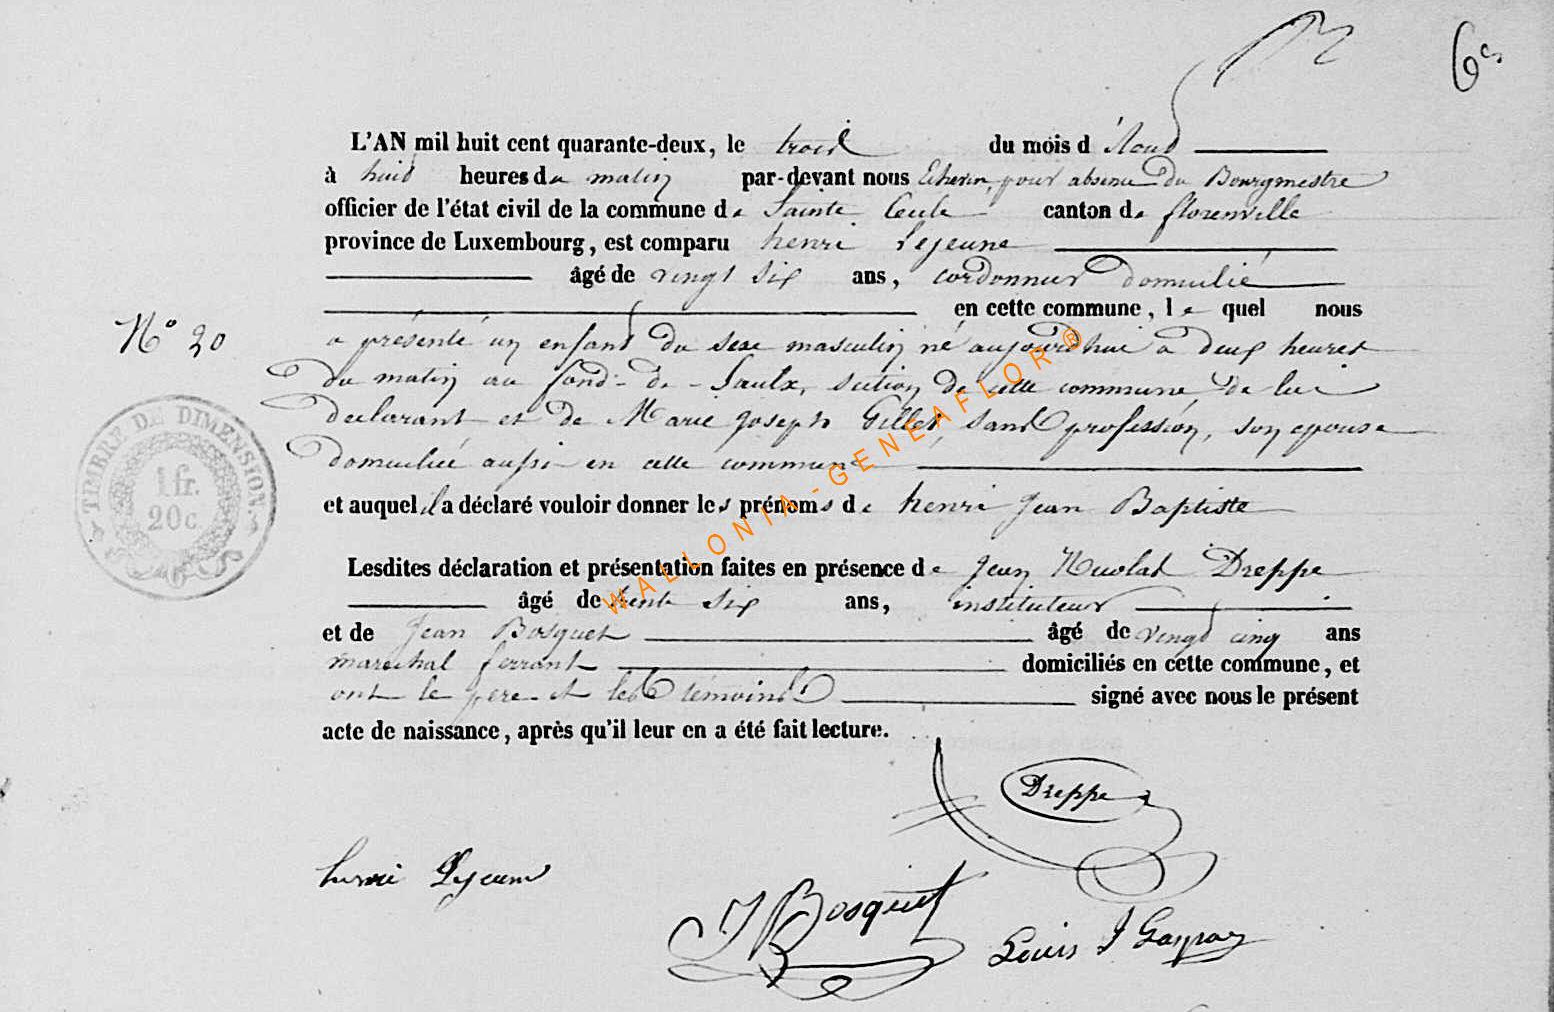 6e
L'AN mil huit cent quarante-deux, le trois du mois d'Aout
à huit heures du matin par-devant nous Echevin, pour absence du Bourgmestre
officier de l'état civil de la commune de Sainte Cecile canton de florenville
province de Luxembourg, est comparu henri Lejeune
âgé de vingt six ans, cordonnier domicilié
en cette commune, lequel nous
N° 20
a présenté un enfant du sexe masculin né aujourd'hui à deux heures
du matin au fond-de-Saulx, section de cette commune, de lui
declarant et de Marie Joseph Gillet, sans profession, son epouse
domiciliée aussi en cette commune
et auquel il a déclaré vouloir donner les prénoms de henri Jean Baptiste
Lesdites déclaration et présentation faites en présence de Jean Nicolas Dreppe
âgé de trente six ans, instituteur
et de Jean Bosquet âgé de vingt cinq ans
marechal ferrant domiciliés en cette commune, et
ont le pere et les témoins signé avec nous le présent
acte de naissance, après qu'il leur en a été fait lecture.
TIMBRE DE DIMENSION.
1 fr.
20 c.
WALLONIA - GENEAFLOR ®
Dreppe
henri Lejeune
J Bosquet
Louis J Gaspar